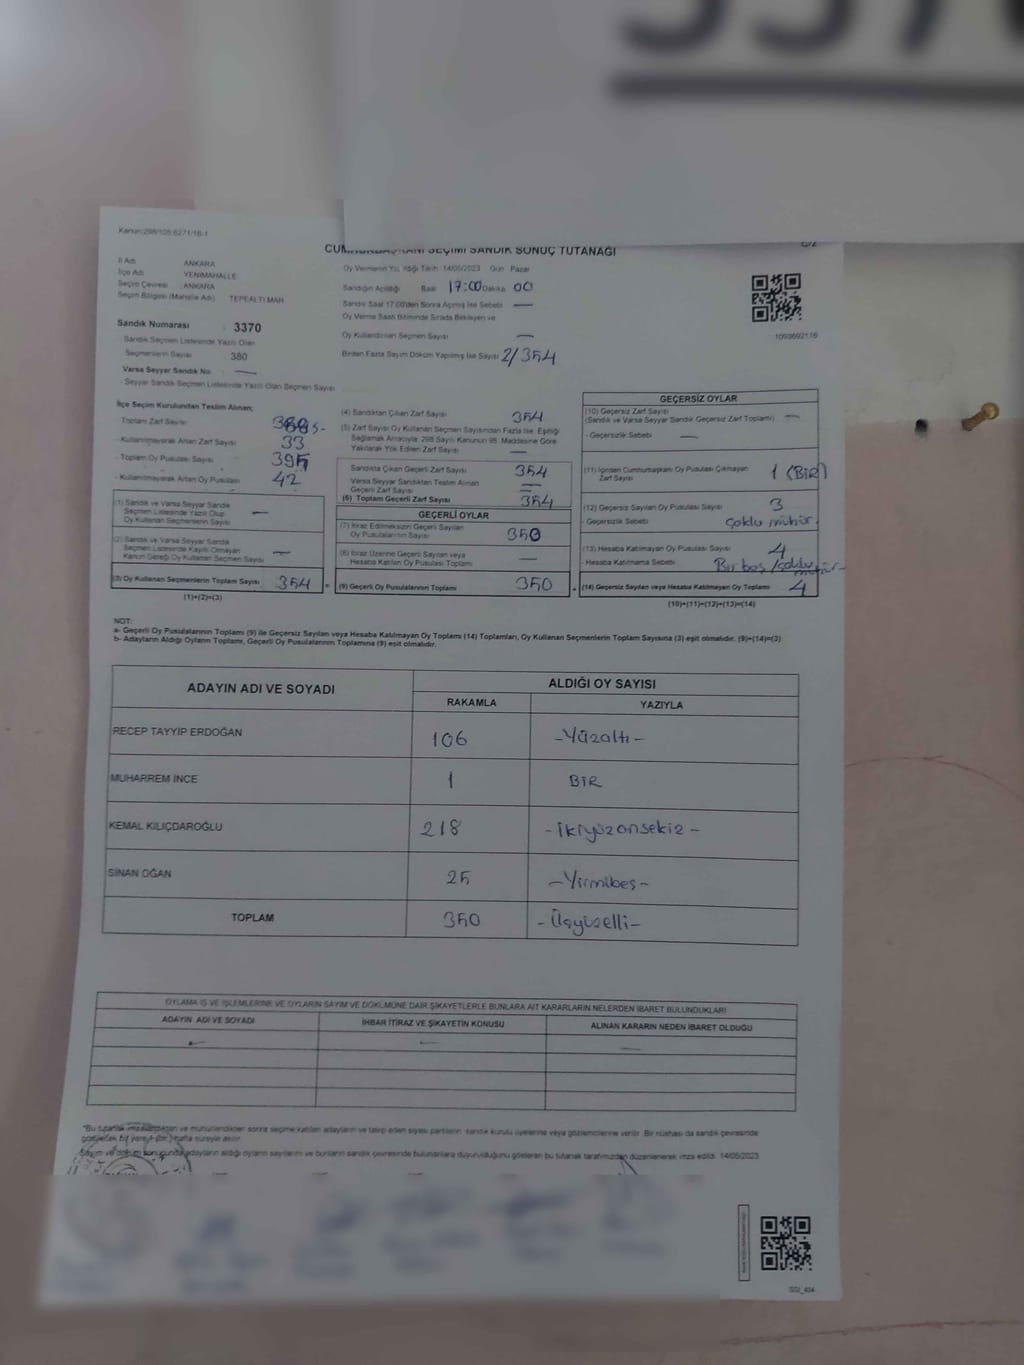 Kanun:298/105 6271/16-1
CUMHURBAŞKANI SEÇİMİ SANDIK SONUÇ TUTANAĞI
İl Adı ANKARA
İlçe Adı YENİMAHALLE
Seçim Çevresi : ANKARA
Seçim Bölgesi (Mahalle Adı) TEPEALTI MAH
Sandık Numarası : 3370
Sandık Seçmen Listesinde Yazılı Olan
Seçmenlerin Sayısı 380
Varsa Seyyar Sandık No : —
- Seyyar Sandık Seçmen Listesinde Yazılı Olan Seçmen Sayısı
Oy Vermenin Yapıldığı Tarih 14/05/2023 Gün Pazar
Sandığın Açıldığı Saat 17:00 Dakika 00
Sandık Saat 17:00'den Sonra Açılmış İse Sebebi —
Oy Verme Saati Bitiminde Sırada Bekleyen ve
Oy Kullandırılan Seçmen Sayısı —
Birden Fazla Sayım Döküm Yapılmış İse Sayısı 2/354
1093692116
İlçe Seçim Kurulundan Teslim Alınan;
Toplam Zarf Sayısı
- Kullanılmayarak Artan Zarf Sayısı 33
- Toplam Oy Pusulası Sayısı 395
- Kullanılmayarak Artan Oy Pusulası 42
(1) Sandık ve Varsa Seyyar Sandık
Seçmen Listesinde Yazılı Olup
Oy Kullanan Seçmenlerin Sayısı —
(2) Sandık ve Varsa Seyyar Sandık
Seçmen Listesinde Kayıtlı Olmayan
Kanun Gereği Oy Kullanan Seçmen Sayısı —
(3) Oy Kullanan Seçmenlerin Toplam Sayısı 354
(1)+(2)=(3)
(4) Sandıktan Çıkan Zarf Sayısı 354
(5) Zarf Sayısı Oy Kullanan Seçmen Sayısından Fazla İse, Eşitliği
Sağlamak Amacıyla; 298 Sayılı Kanunun 98. Maddesine Göre
Yakılarak Yok Edilen Zarf Sayısı —
Sandıkta Çıkan Geçerli Zarf Sayısı 354
Varsa Seyyar Sandıktan Teslim Alınan
Geçerli Zarf Sayısı —
(6) Toplam Geçerli Zarf Sayısı 354
GEÇERLİ OYLAR
(7) İtiraz Edilmeksizin Geçerli Sayılan
Oy Pusulalarının Sayısı 350
(8) İtiraz Üzerine Geçerli Sayılan veya
Hesaba Katılan Oy Pusulası Toplamı —
(9) Geçerli Oy Pusulalarının Toplamı 350
GEÇERSİZ OYLAR
(10) Geçersiz Zarf Sayısı
(Sandık ve Varsa Seyyar Sandık Geçersiz Zarf Toplamı) —
- Geçersizlik Sebebi —
(11) İçinden Cumhurbaşkanı Oy Pusulası Çıkmayan
Zarf Sayısı 1 (BİR)
(12) Geçersiz Sayılan Oy Pusulası Sayısı 3
- Geçersizlik Sebebi çoklu mühür
(13) Hesaba Katılmayan Oy Pusulası Sayısı 4
- Hesaba Katılmama Sebebi Bir boş / çoklu mühür
(14) Geçersiz Sayılan veya Hesaba Katılmayan Oy Toplamı 4
(10)+(11)+(12)+(13)=(14)
NOT:
a- Geçerli Oy Pusulalarının Toplamı (9) ile Geçersiz Sayılan veya Hesaba Katılmayan Oy Toplamı (14) Toplamları, Oy Kullanan Seçmenlerin Toplam Sayısına (3) eşit olmalıdır. (9)+(14)=(3)
b- Adayların Aldığı Oyların Toplamı, Geçerli Oy Pusulalarının Toplamına (9) eşit olmalıdır.
ADAYIN ADI VE SOYADI ALDIĞI OY SAYISI
RAKAMLA YAZIYLA
RECEP TAYYİP ERDOĞAN 106 -Yüzaltı-
MUHARREM İNCE 1 BİR
KEMAL KILIÇDAROĞLU 218 -İkiyüzonsekiz-
SİNAN OĞAN 25 -Yirmibeş-
TOPLAM 350 -Üçyüzelli-
OYLAMA İŞ VE İŞLEMLERİNE VE OYLARIN SAYIM VE DÖKÜMÜNE DAİR ŞİKAYETLERLE BUNLARA AİT KARARLARIN NELERDEN İBARET BULUNDUKLARI
ADAYIN ADI VE SOYADI İHBAR İTİRAZ VE ŞİKAYETİN KONUSU ALINAN KARARIN NEDEN İBARET OLDUĞU
— — —
*Bu tutanak imzalandıktan ve mühürlendikten sonra seçime katılan adayların ve takip eden siyasi partilerin sandık kurulu üyelerine veya gözlemcilerine verilir. Bir nüshası da sandık çevresinde
görülecek bir yere 1 (bir) hafta süreyle asılır.
Sayım ve döküm sonucunda adayların aldığı oyların sayılarını ve bunların sandık çevresinde bulunanlara duyurulduğunu gösteren bu tutanak tarafımızdan düzenlenerek imza edildi. 14/05/2023